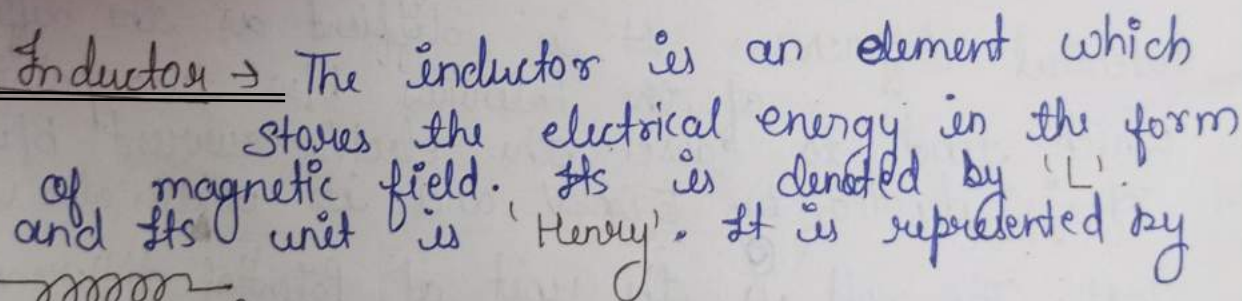 Inductor → The inductor is an element which
stores the electrical energy in the form
of magnetic field. Its is denoted by 'L'.
and Its unit is 'Henry'. It is represented by